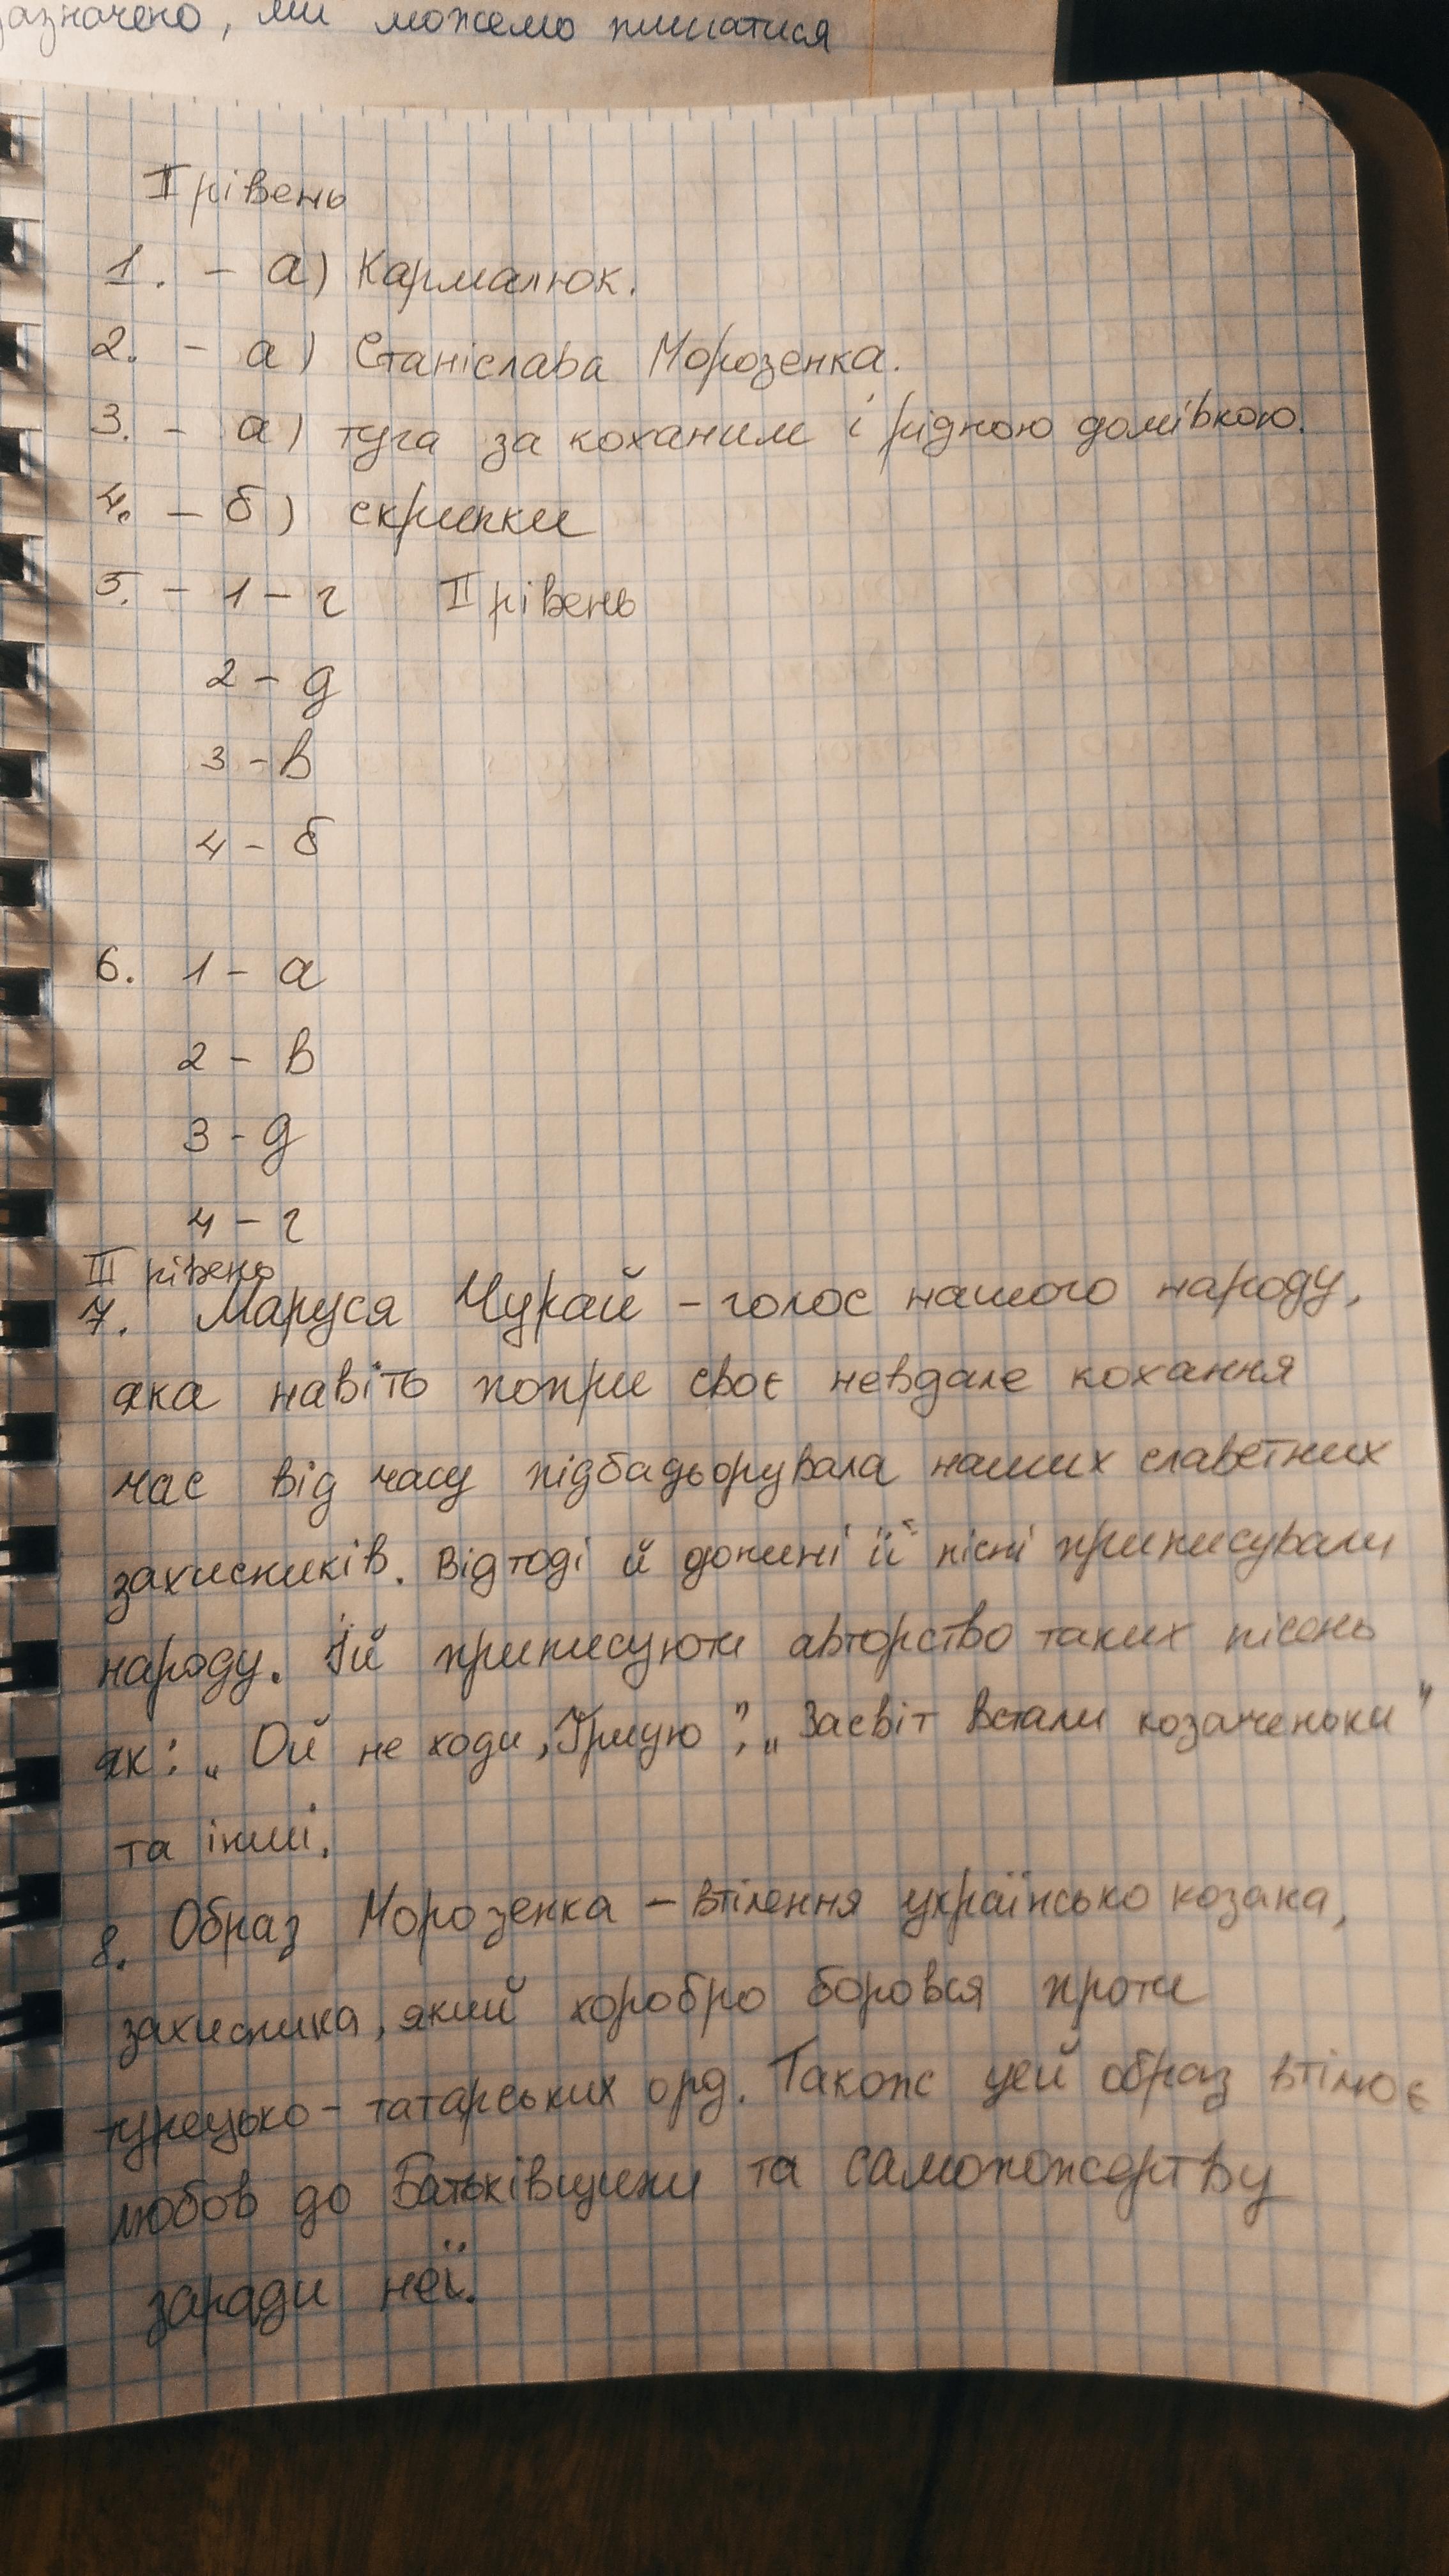 азначено, ми можемо пишатися
I рівень
1. - а) Кармалюк.
2. - а) Станіслава Морозенка.
3. - а) туга за коханим і рідною домівкою.
4. - б) скрипки
5. - 1 - г II рівень
2 - д
3 - в
4 - б
6. 1 - а
2 - в
3 - д
4 - г
III рівень
7. Маруся Чурай - голос нашого народу,
яка навіть попри своє невдале кохання
час від часу підбадьорувала наших славетних
захисників. Відтоді й донині її пісні приписували
народу. Їй приписують авторство таких пісень
як: „Ой не ходи, Грицю", „Засвіт встали козаченьки"
та інші.
8. Образ Морозенка - втілення українсько козака,
захисника, який хоробро боровся проти
турецько-татарських орд. Також цей образ втілює
любов до Батьківщини та самопожертву
заради неї.